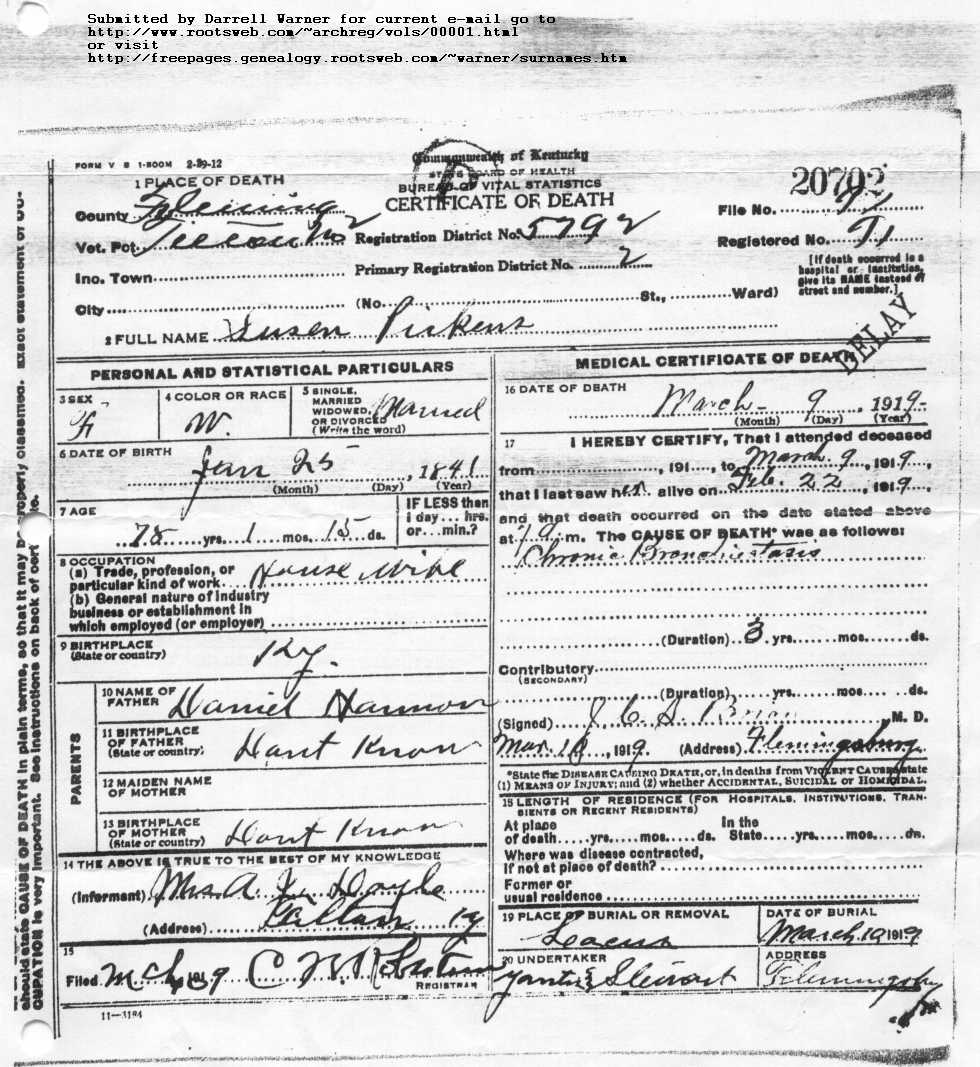 Submitted by Darrell Warner for current e-mail go to
http://www.rootsweb.com/~archreg/vols/00001.html
or visit
http://freepages.genealogy.rootsweb.com/~warner/surnames.htm
FORM V S 1-500M 2-29-12
Commonwealth of Kentucky
STATE BOARD OF HEALTH
BUREAU OF VITAL STATISTICS
CERTIFICATE OF DEATH
20702
1 PLACE OF DEATH
County Fleming
Vot. Pct
Registration District No. 5792
Primary Registration District No. 2
File No. 91
Registered No. 91
[If death occurred in a
hospital or institution,
give its NAME instead of
street and number.]
Inc. Town
City (No. St., Ward)
2 FULL NAME Susen Pickens
DELAY
PERSONAL AND STATISTICAL PARTICULARS
3 SEX F
4 COLOR OR RACE W.
5 SINGLE,
MARRIED
WIDOWED,
OR DIVORCED
(Write the word) Married
6 DATE OF BIRTH Jan 25, 1841
(Month) (Day) (Year)
7 AGE
78 yrs. 1 mos. 15 ds.
IF LESS than
1 day... hrs.
or... min.?
8 OCCUPATION
(a) Trade, profession, or
particular kind of work House wife
(b) General nature of industry
business or establishment in
which employed (or employer)
9 BIRTHPLACE
(State or country) Ky.
PARENTS
10 NAME OF
FATHER Daniel Hannon
11 BIRTHPLACE
OF FATHER
(State or country) Dont Know
12 MAIDEN NAME
OF MOTHER
13 BIRTHPLACE
OF MOTHER
(State or country) Dont Know
14 THE ABOVE IS TRUE TO THE BEST OF MY KNOWLEDGE
(Informant) Mrs A. Doyle
(Address) Ky
15
Filed Mch 1919 C
REGISTRAR
11—3194
MEDICAL CERTIFICATE OF DEATH
16 DATE OF DEATH
March 9, 1919
(Month) (Day) (Year)
17 I HEREBY CERTIFY, That I attended deceased
from , 191 , to March 9, 1919,
that I last saw her alive on Feb. 22, 1919,
and that death occurred on the date stated above
at m. The CAUSE OF DEATH* was as follows:
Chronic Bronchiectasis
(Duration) 3 yrs. mos. ds.
Contributory
(SECONDARY)
(Duration) yrs. mos. ds.
(Signed) M. D.
Mar. 10, 1919. (Address) Flemingsburg
*State the DISEASE CAUSING DEATH, or, in deaths from VIOLENT CAUSES, state
(1) MEANS OF INJURY; and (2) whether ACCIDENTAL, SUICIDAL or HOMICIDAL.
18 LENGTH OF RESIDENCE (FOR HOSPITALS, INSTITUTIONS, TRAN-
SIENTS OR RECENT RESIDENTS)
At place
of death yrs. mos. ds.
In the
State yrs. mos. ds.
Where was disease contracted,
if not at place of death?
Former or
usual residence
19 PLACE OF BURIAL OR REMOVAL
DATE OF BURIAL
March 10 1919
20 UNDERTAKER
Stewart
ADDRESS
Flemingsburg
should state CAUSE OF DEATH in plain terms, so that it may be properly classified. Exact statement of OC-
CUPATION is very important. See instructions on back of cert